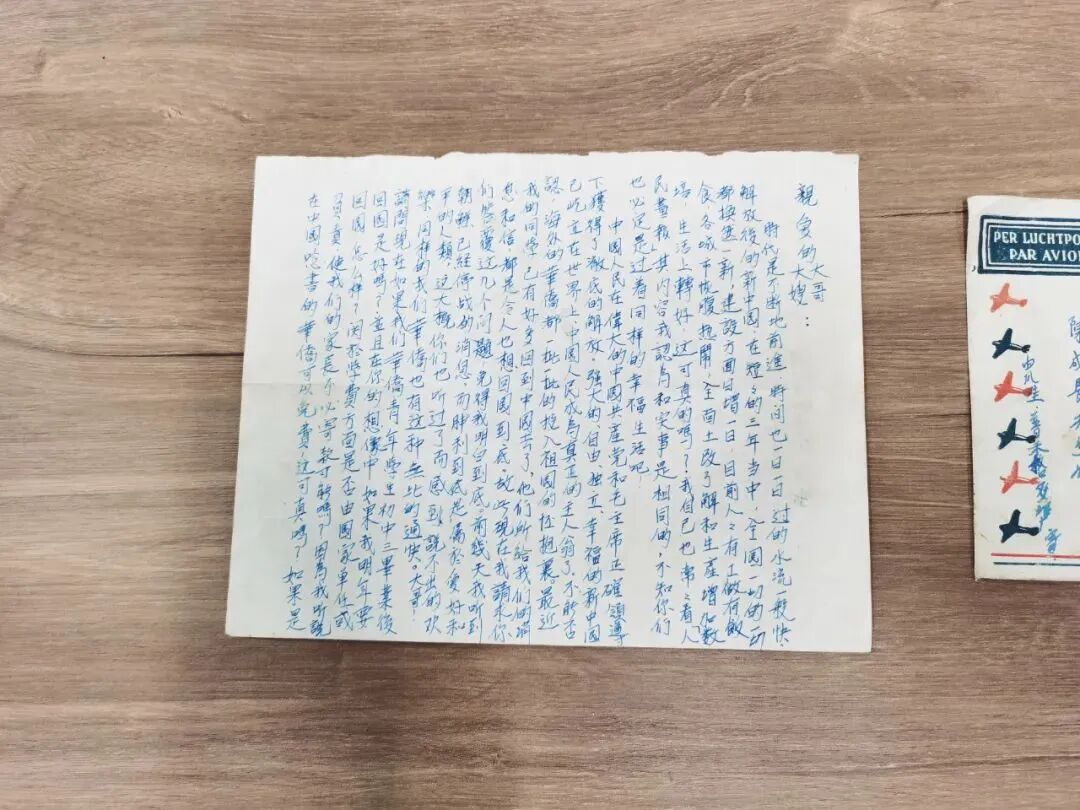 親愛的大哥
大嫂：
時代是不断地前進，時间也一日一日过的水流一般快，
解放後的新中國在短々的三年当中，全國一切的一切
都换然一新，建設方面日增一日，目前人々有工做有飯
食各城市恍腹热鬧，全面土改了解和生產增加数
倍，生活上轉好，这可真的嗎？我自己也常々看人
民畫報，其内容我認為和实事是相同的，不知你们
也必定是过着同样的幸福生活吧！
中國人民在偉大的中國共產党和毛主席正確領導
下獲得了澈底的解放，强大的自由、独立、幸福的新中國
已屹立在世界上中國人民成為真正的主人翁了，不能否
認，海外的華僑都一批一批的投入祖國的怀抱裏。最近
我的同学已有好多回到中國去了，他们所給我们的消
息和信都是令人也想回國到底，故此現在我請求你
们答覆这几个问题免得我明白到底，前幾天我听到
朝鮮已經停战的消息，而勝利到底是屬於愛好和
平的人類，这大概你们也听过了而感到說不出的欢
樂，同样的我们華僑也有这种無比的通快。大哥！
請問現在如果我们華僑青年学生初中三畢業後
回國是好嗎？並且在你的想像中如果我明年要
回國怎么样？関於学費方面是否由國家单位或
負責使我们的家長不必寄款可能嗎？因為我听說
在中國唸書的華僑可以免費，这可真嗎？如果是
PER LUCHTPO
PAR AVIO
陳